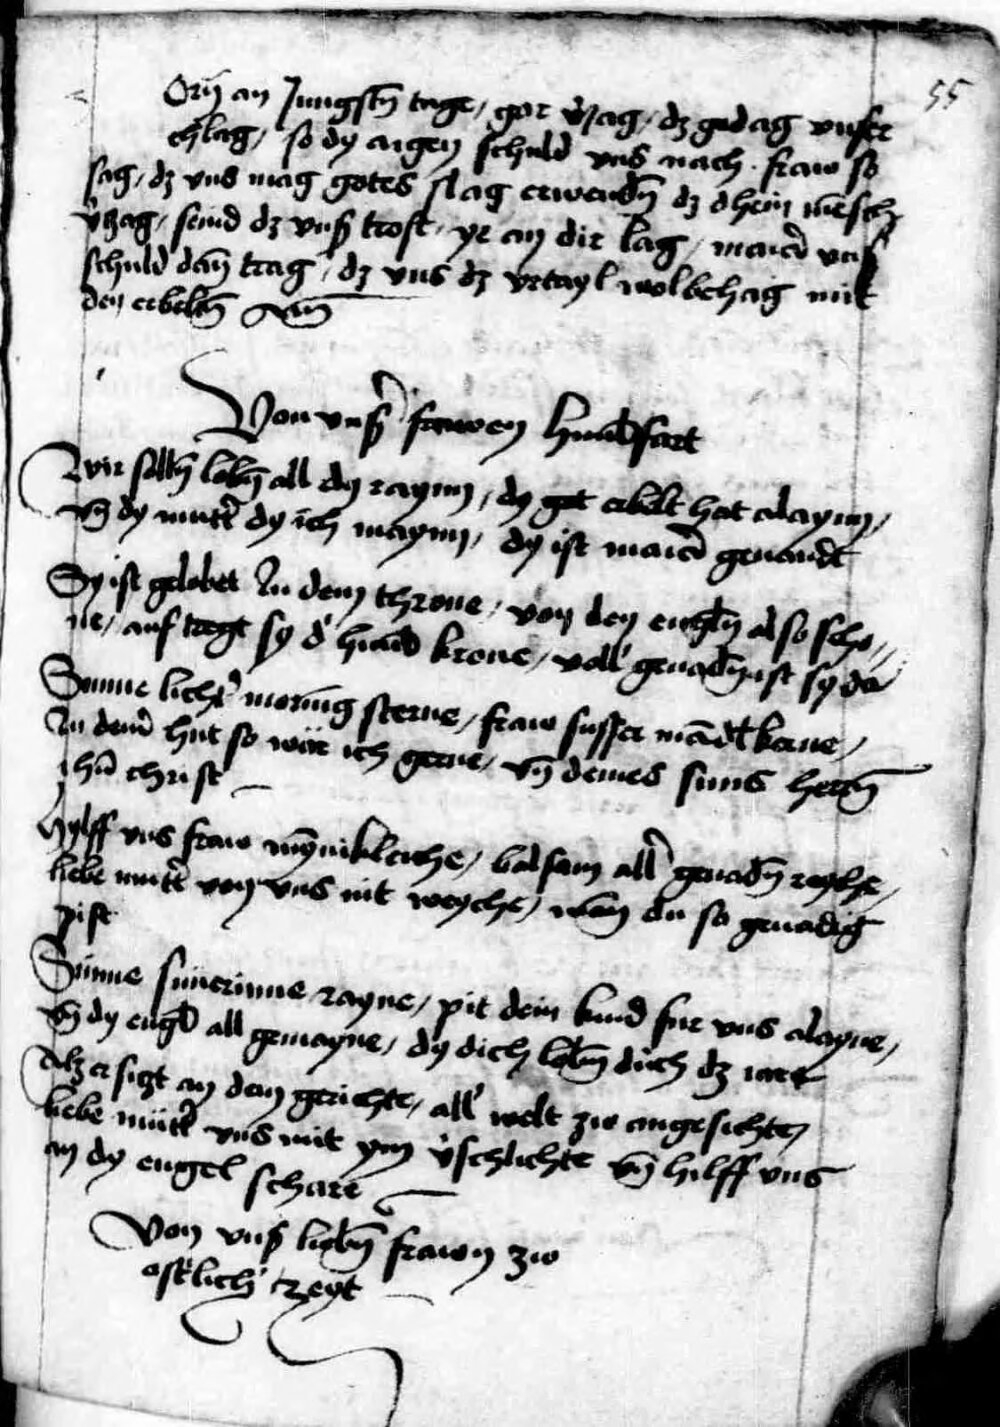 55
an Jungstn tage, gar v̉zag, dz gedag vnser
chlag, so dy argen schuld vns nach. fraw so
sag, dz vns mag gotes slag erwendn̄ dz dhein mēsch
v̉zag, seind dz vnß trost, yr an dir lag, maria vnß
schuld dan̄ trag, dz vns dz vrtayl wolbehag mit
den erbeltn̄
Von vnß frawen himelfart
Wir solln̄ lobn̄ all dy raynn, dy got erbelt hat alaynn,
vn̄ dy mutter dy ich maynn, dy ist maria genandt
Sy ist gelobet In dem throne, von den engeln̄ also scho-
ne, auf tregt sy d' himel krone, voll genadn̄ ist sy da
Sunne lichter moring sterne, fraw susser mādl kerne,
In deiner hut so wär ich gerne, vn̄ deines suns herrn̄
ihū christ
Hylff vns fraw mynikleiche, balsam aller genadn̄ reyche,
liebe mutter von vns nit weyche, wan̄ du so genadig
pist
Sünne sünerinne rayne, pit dein kind fur vns alayne,
vn̄ dy engel all gemayne, dy dich lobn̄ durch dz iar
Alz er sizt an dem gerichte, all' welt zw angesichte,
liebe mütter vns mit ym v̉schlichte vn̄ hilff vns
an dy engel schare
Von vnß liebn̄ frawn zw
osterlich' tzeyt